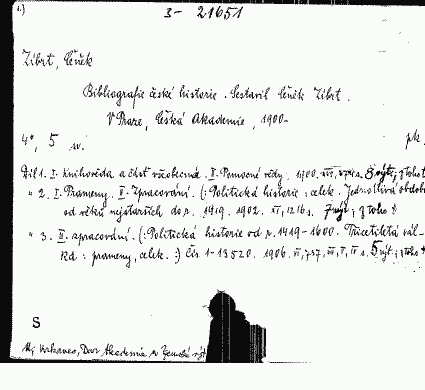 3- 21651
Zíbrt, Čeněk
Bibliografie české historie. Sestavil Čeněk Zíbrt.
V Praze, Česká Akademie, 1900-
4°, 5 sv. pk.
Díl 1. I. Knihověda a část všeobecná. II. Pomocné vědy. 1900.
" 2. I. Prameny. II. Zpracování. (: Politická historie: celek. Jednotlivá období
od věků nejstarších do r. 1419. 1902. XI, 1216 s.
" 3. II. zpracování. (: Politická historie od r. 1419-1600. Třicetiletá vál-
ka: prameny, celek. :) Čís. 1-13520. 1906.
S